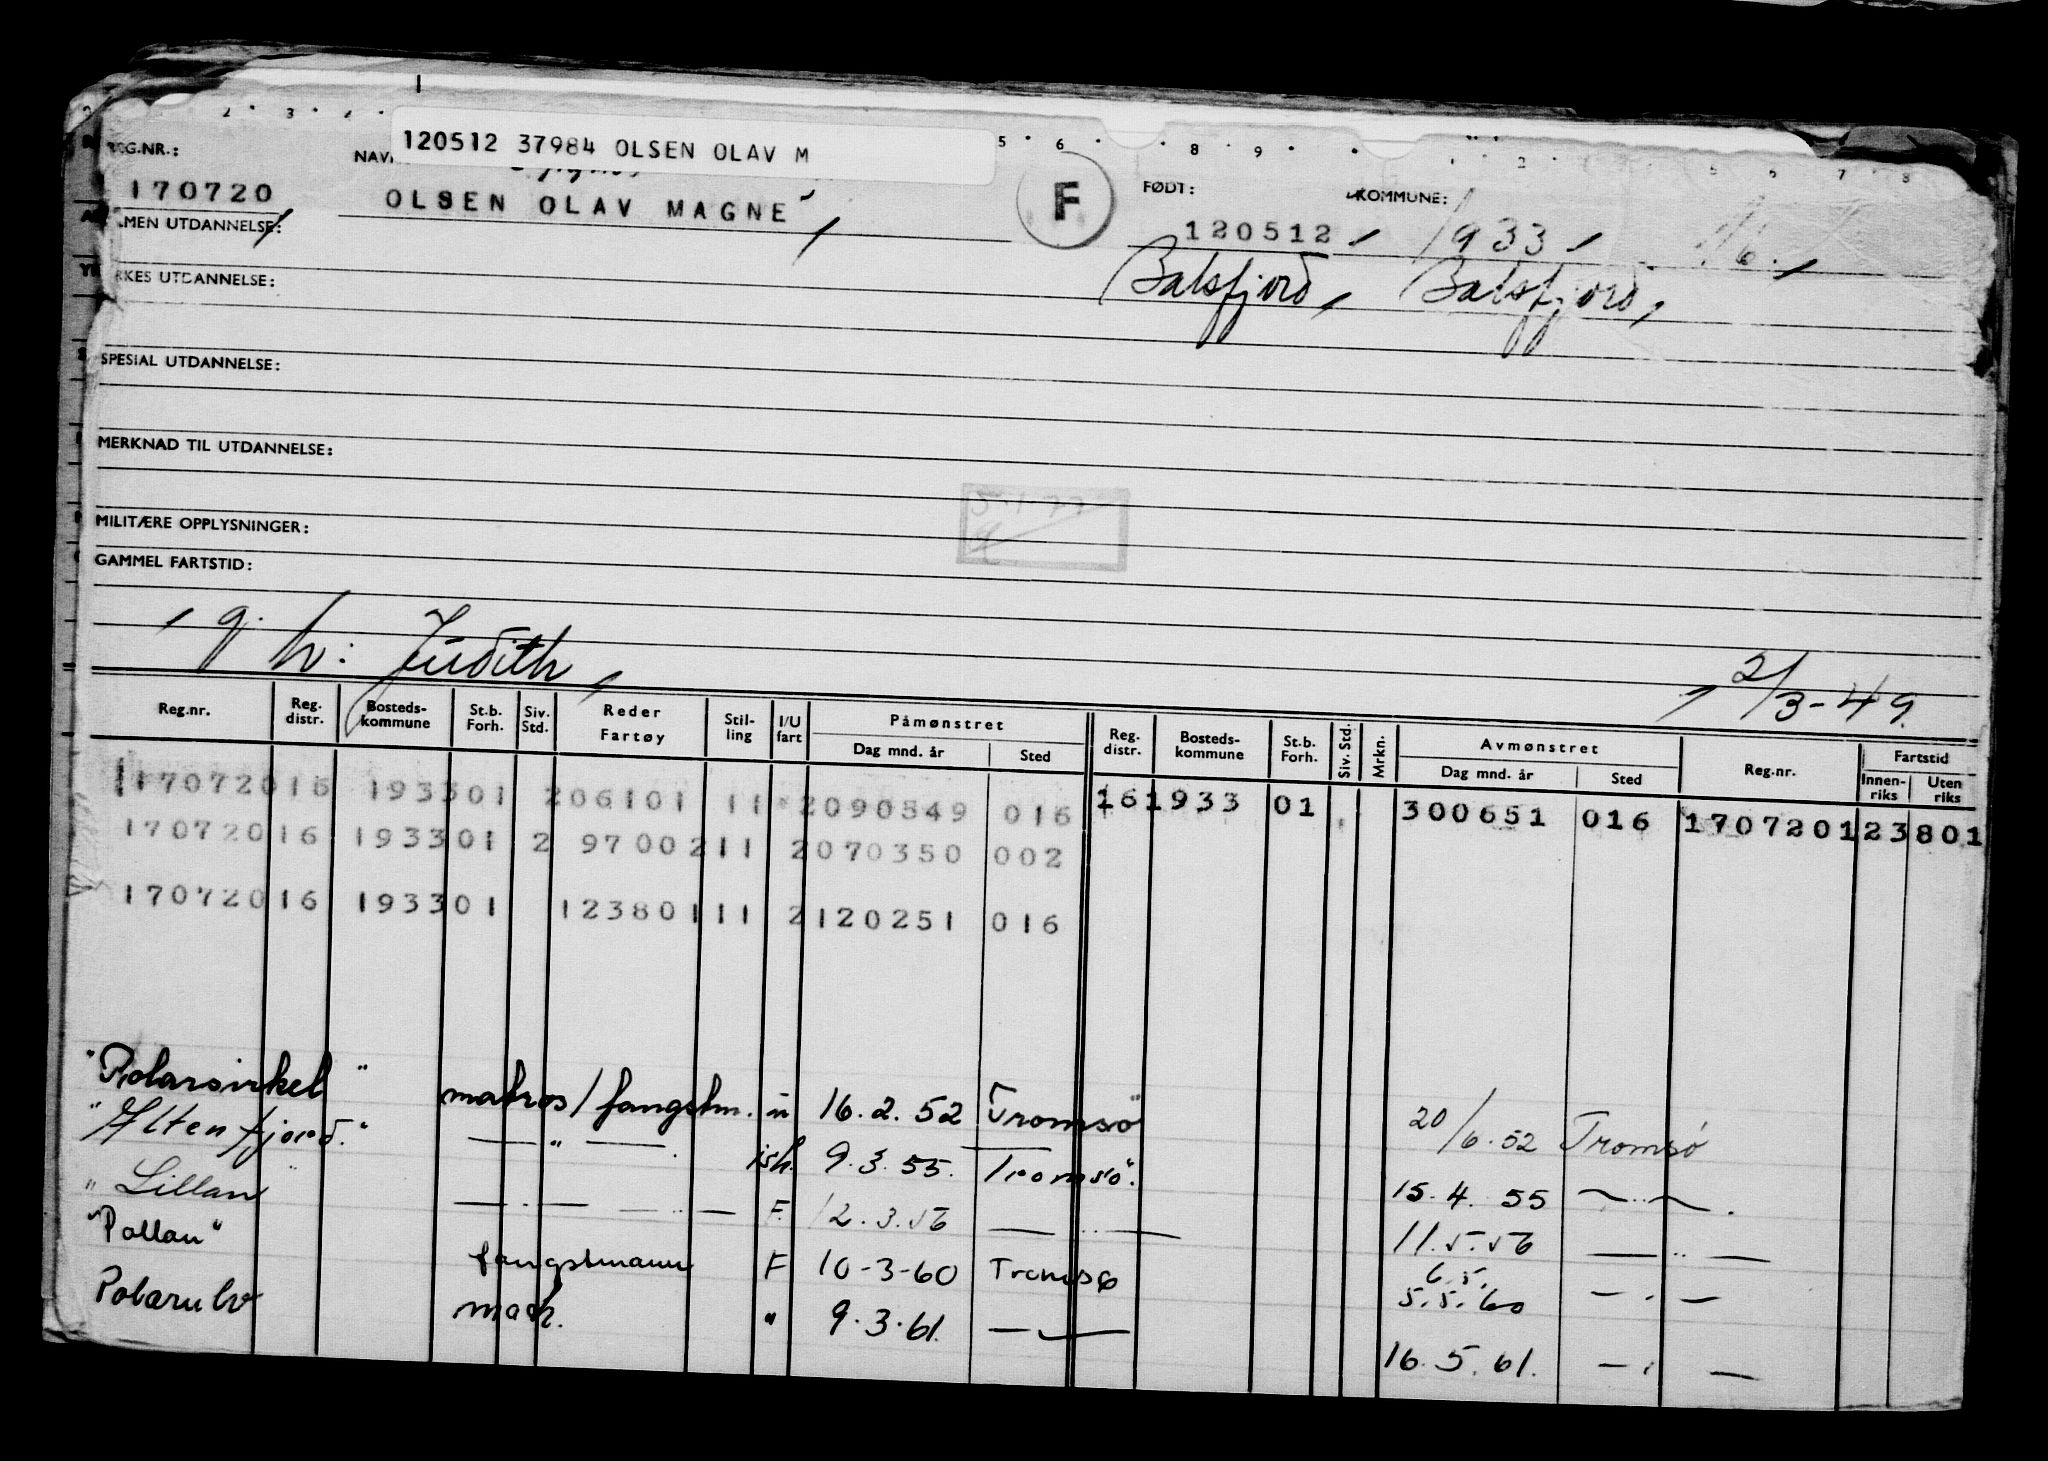 120512 37984 OLSEN OLAV M
REG.NR.: NAVN FØDT: KOMMUNE:
170720 OLSEN OLAV MAGNE F 120512 1933 16.
ALMEN UTDANNELSE:
Balsfjord, Balsfjord,
YRKES UTDANNELSE:
SPESIAL UTDANNELSE:
MERKNAD TIL UTDANNELSE:
5.1.77
MILITÆRE OPPLYSNINGER:
GAMMEL FARTSTID:
g. h: Judith, 2/3-49.
Reg.nr. Reg. distr. Bosteds-kommune St.b. Forh. Siv. Std. Reder Fartøy Stil-ling I/U fart Påmønstret Dag mnd. år Sted Reg. distr. Bosteds-kommune St.b. Forh. Siv. Std. Mrkn. Avmønstret Dag mnd. år Sted Reg.nr. Fartstid Innen-riks Uten riks
170720 16 1933 01 2 06101 11 2 090549 016 16 1933 01 300651 016 170720 123801
170720 16 1933 01 2 97002 11 2 070350 002
170720 16 1933 01 123801 11 2 120251 016
"Polarsirkel" matros/fangstm. u 16.2.52 Tromsø 20/6.52 Tromsø
"Altenfjord." — " — ish. 9.3.55. Tromsø. 15.4.55 — " —.
"Lillan" — " — — " — F. 12.3.56 — " — 11.5.56 — " —
"Pollan" fangstmann F 10-3-60 Tromsø 6.5. 5.5.60 — " —
Polarulv mask. " 9.3.61. — " — 16.5.61. — " —